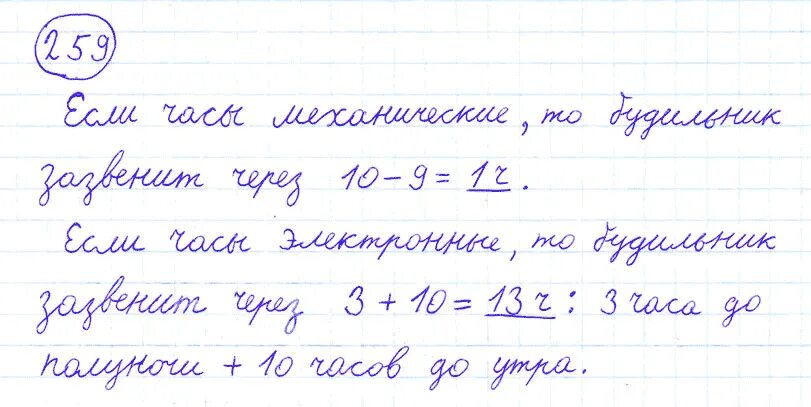 259
Если часы механические, то будильник
зазвенит через 10-9=1ч.
Если часы электронные, то будильник
зазвенит через 3+10=13ч: 3 часа до
полуночи + 10 часов до утра.